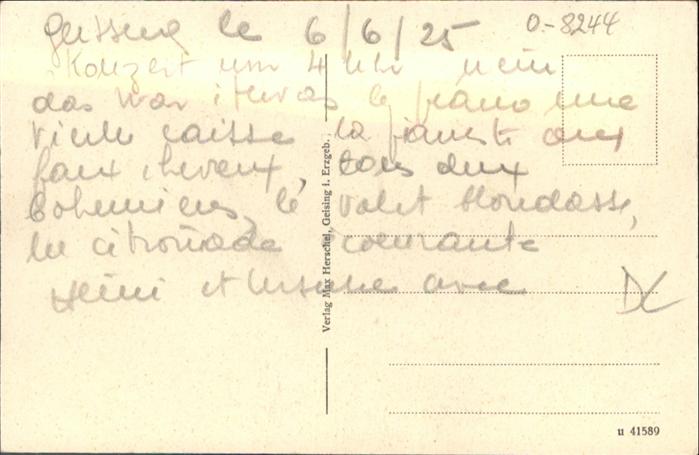 Geising le 6/6/25
0-8244
Konzert um 4 Uhr nein
das war etwas le piano une
vieille caisse la pianiste aux
faux cheveux, tous deux
bohemiens, le valet blondasse,
la citronade courante
Heini et avec
DL
Verlag Max Herschel, Geising i. Erzgeb.
u 41589